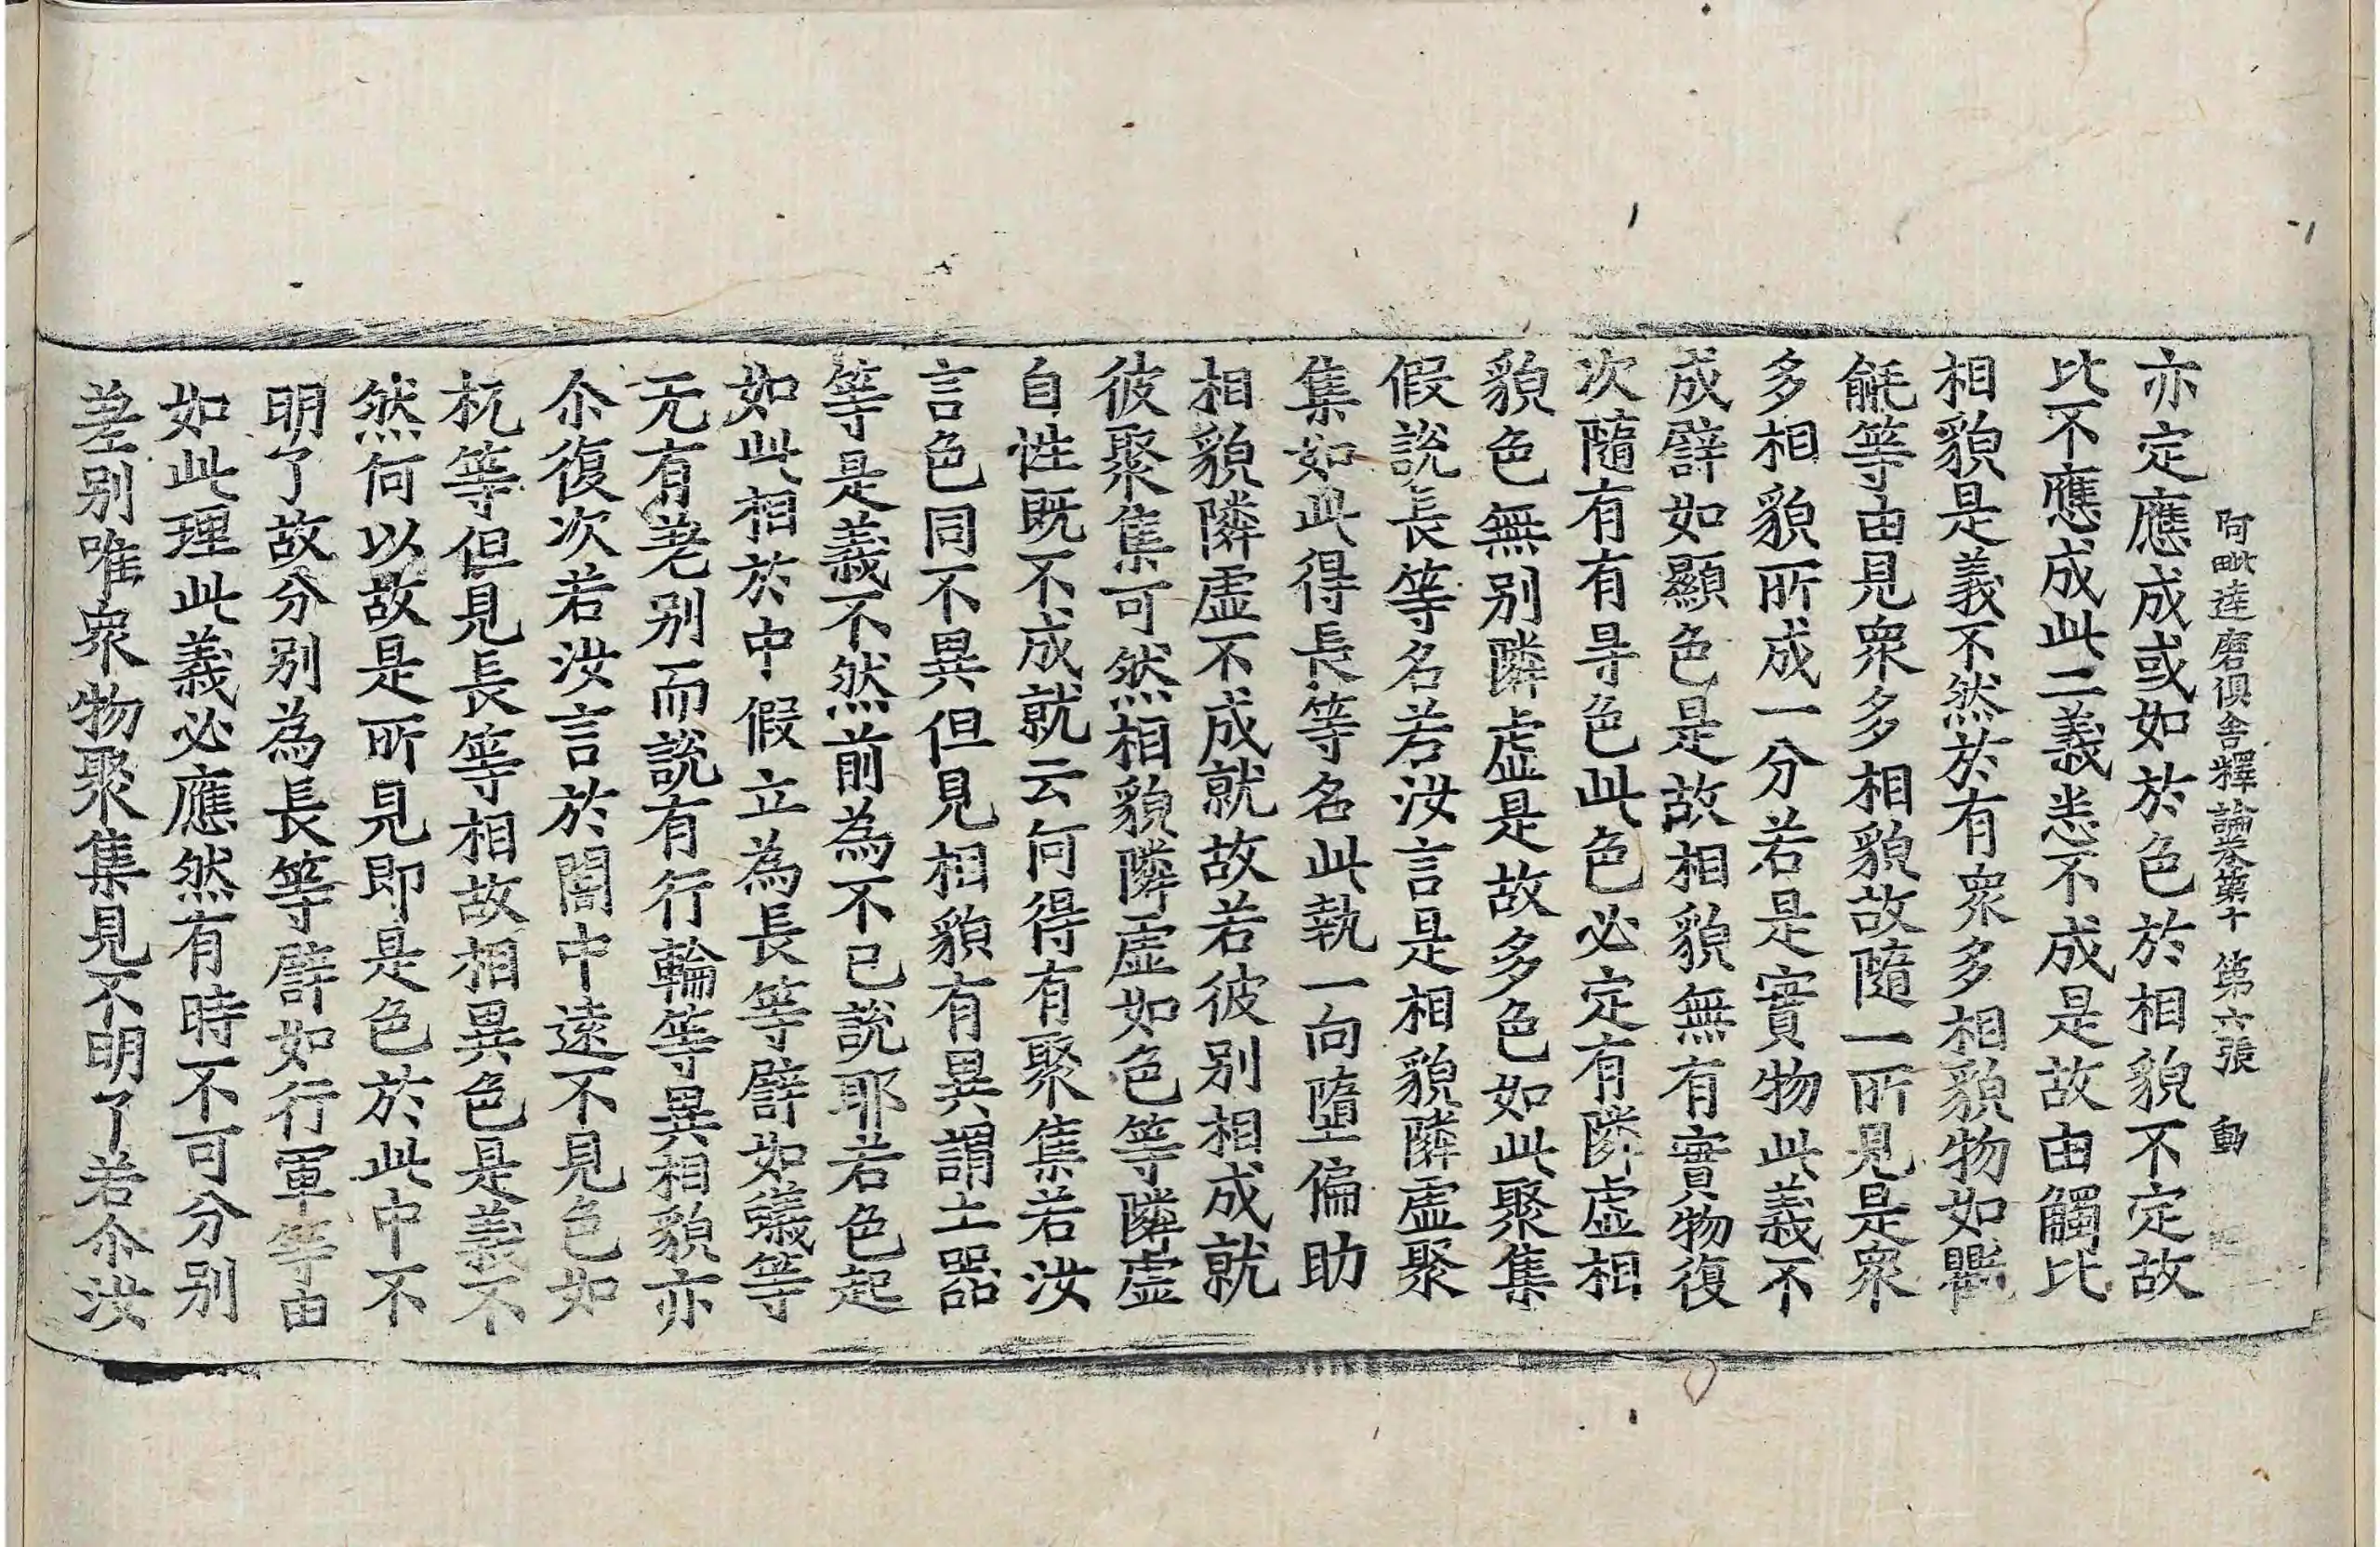 阿毗達磨俱舍釋論卷第十　第六張　動
亦定應成或如於色於相貌不定故
比不應成此二義悉不成是故由觸比
相貌是義不然於有衆多相貌物如
毹等由見衆多相貌故隨一所見是衆
多相貌所成一分若是實物此義不
成譬如顯色是故相貌無有實物復
次隨有有㝵色此色必定有隣虛相
貌色無別隣虛是故多色如此聚集
假說長等名若汝言是相貌隣虛聚
集如此得長等名此執一向墮偏助
相貌隣虛不成就故若彼別相成就
彼聚集可然相貌隣虛如色等隣虛
自性既不成就云何得有聚集若汝
言色同不異但見相貌有異謂土器
等是義不然前為不已說耶若色起
如此相於中假立為長等譬如蟻等
无有差別而說有行輪等異相貌亦
尒復次若汝言於闇中遠不見色如
杌等但見長等相故相異色是義不
然何以故是所見即是色於此中不
明了故分別為長等譬如行軍等由
如此理此義必應然有時不可分別
差別唯衆物聚集見不明了若尒汝